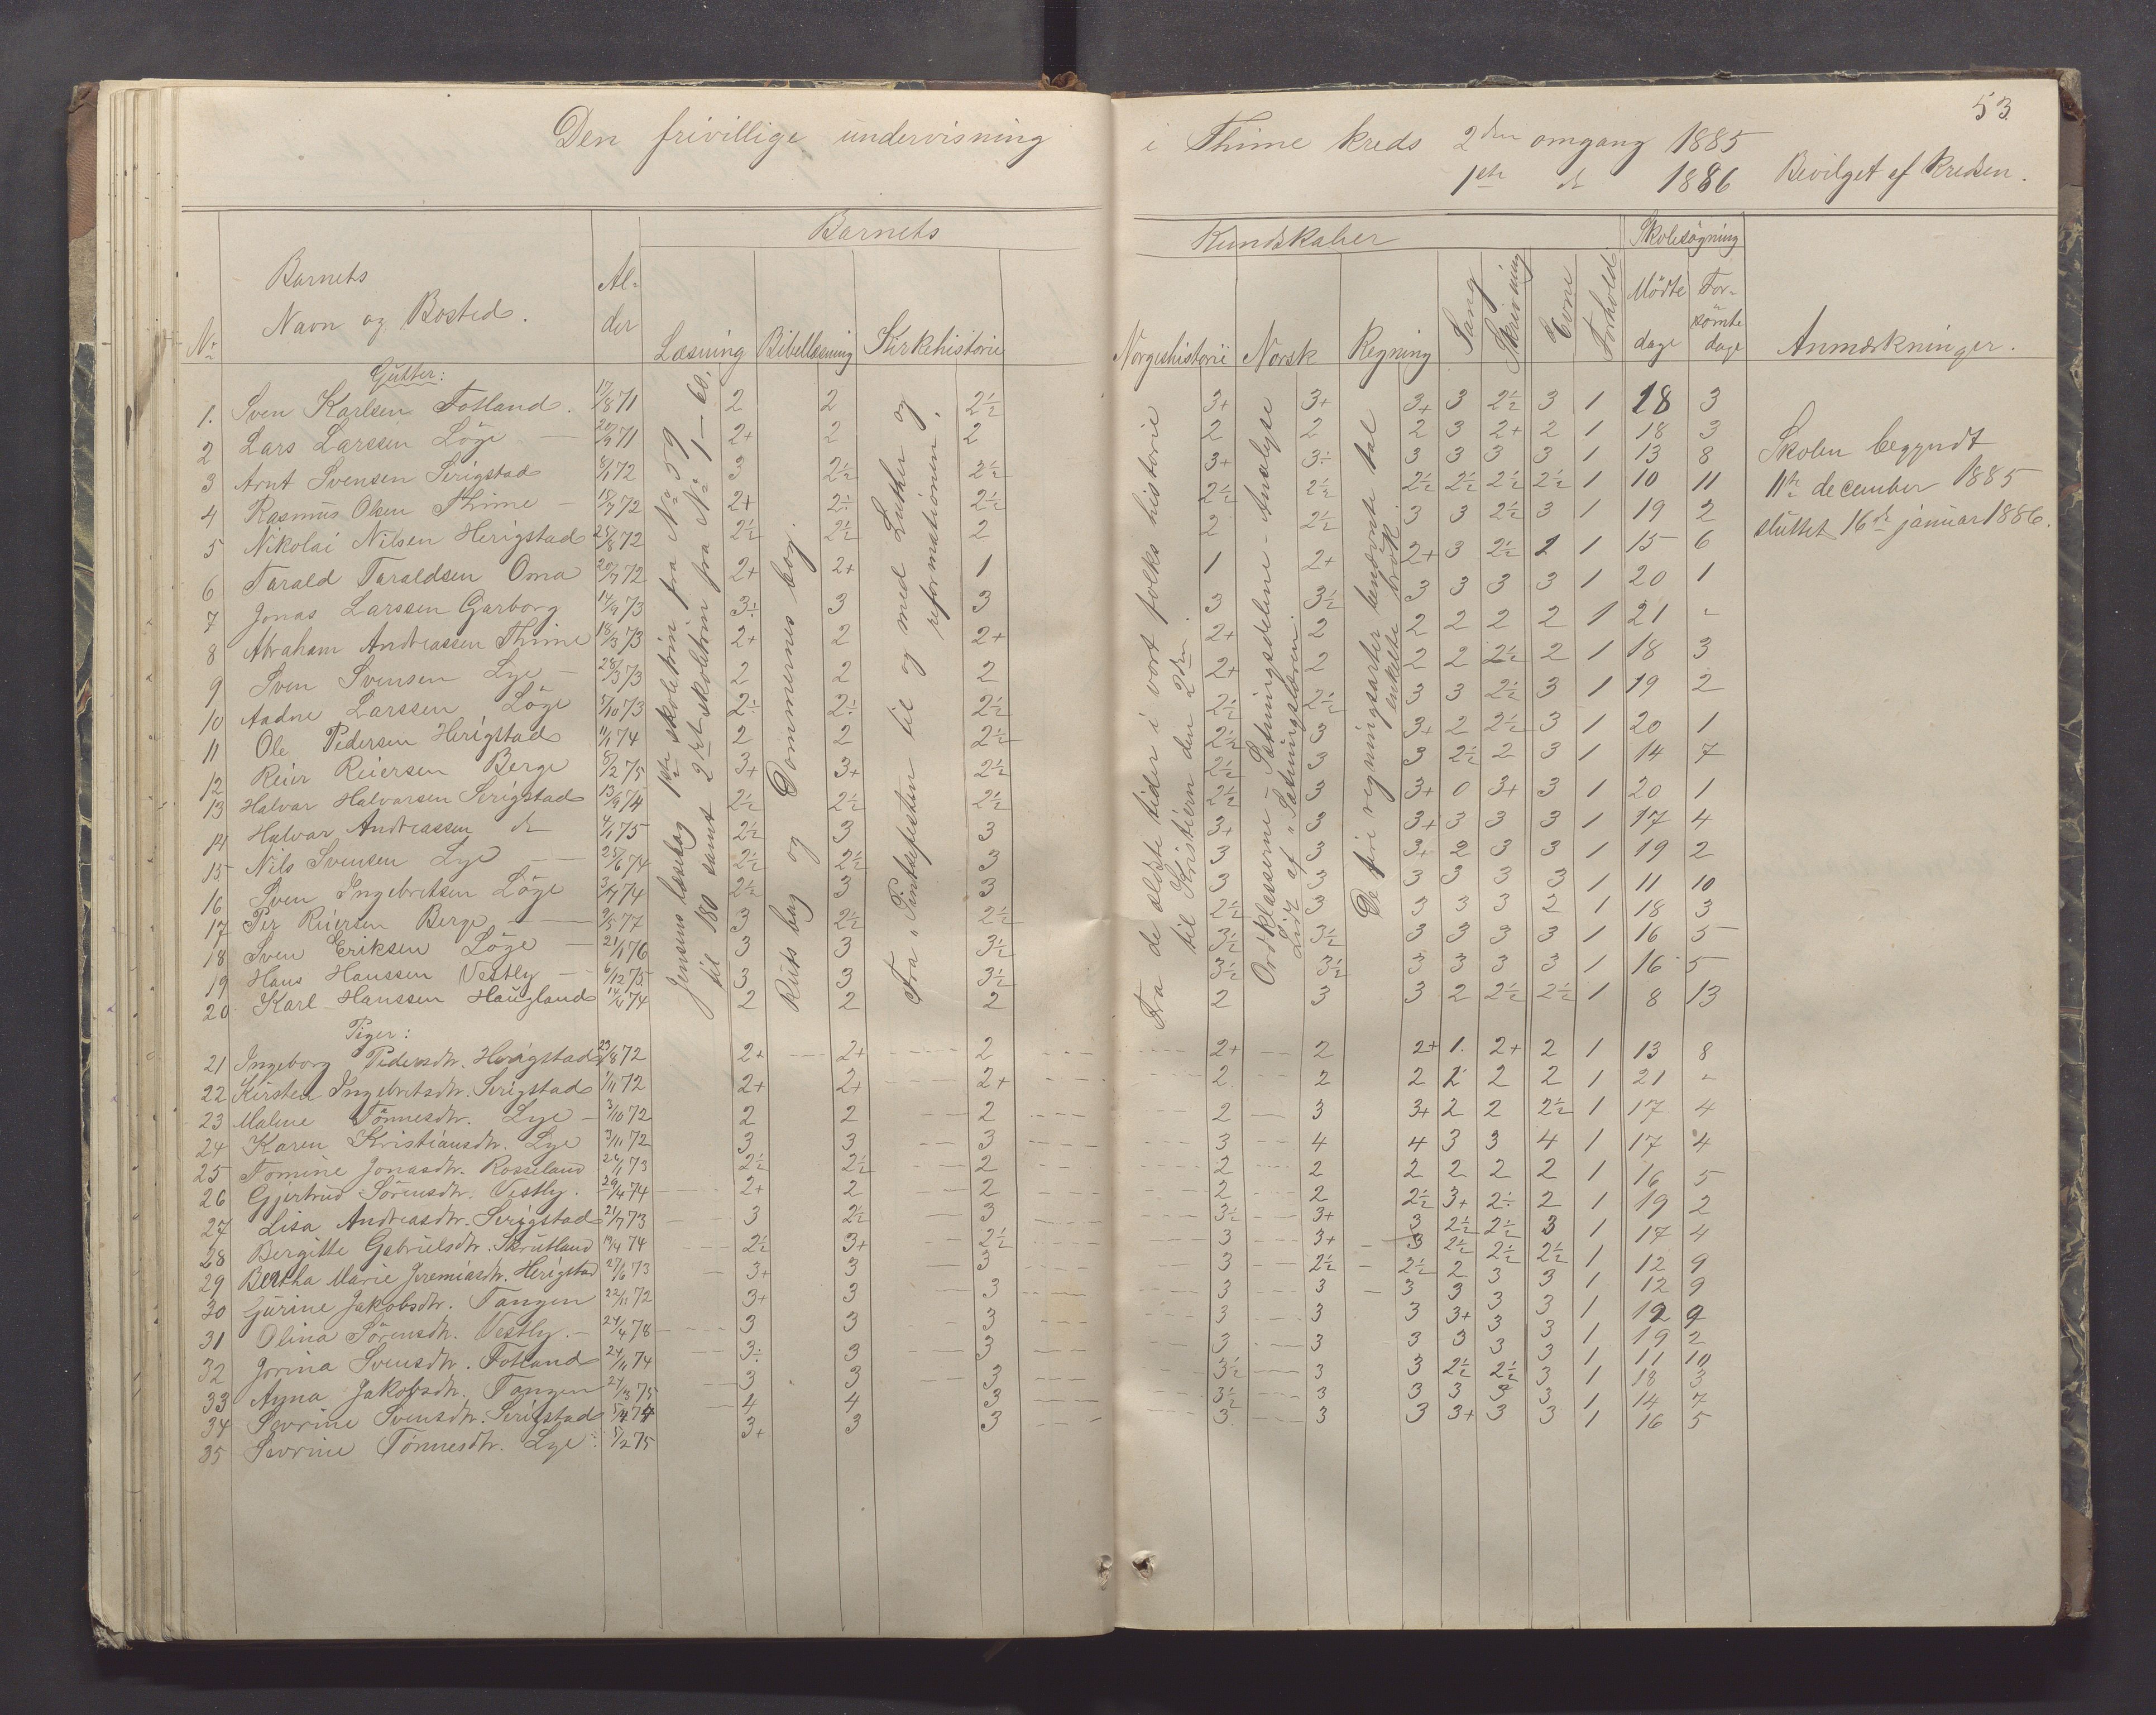 53.
Den frivillige undervisning i Thime kreds 2den omgang 1885
1ste do 1886 Bevilget af kredsen.
Barnets Kundskaber Skolesøgning
No Barnets Navn og Bosted. Alder Læsning Bibellæsning Kirkehistorie Norgeshistorie Norsk Regning Sang Skrivning Evne Forhold Mödte dage Forsömte dage Anmærkninger.
Gutter:
1. Sven Karlsen Fotland. 17/8 71 2 2 2½ 3+ 3+ 3+ 3 2½ 3 1 18 3
2 Lars Larssen Löge — 20/9 71 2+ 2 2 2 2 2 3 2+ 2 1 18 3
3 Arnt Svensen Serigstad 8/1 72 3 2½ 2½ 3+ 3÷ 3 3 3 3 1 13 8
4 Rasmus Olsen Thime — 18/7 72 2+ 2÷ 2½ 2½ 2½ 2½ 2½ 2½ 2½ 1 10 11
5 Nikolai Nilsen Herigstad 25/8 72 2½ 2½ 2 2 2½ 3 3 2½ 3 1 19 2
6 Tarald Taraldsen Oma 20/7 72 2+ 2+ 1 1 2+ 2+ 3 2½ 2 1 15 6
7 Jonas Larssen Garborg 14/9 73 3÷ 3 3 3 3½ 3 3 3 3 1 20 1
8 Abraham Andreassen Thime 18/3 73 2+ 2 2+ 2+ 2 2 2 2 2 1 21 -
9 Sven Svensen Lye — 28/3 73 2 2 2 2+ 2 2 2 2½ 2 1 18 3
10 Aadne Larssen Löge 5/10 73 2÷ 2÷ 2½ 2½ 2½ 3 3 2½ 3 1 19 2
11 Ole Pedersen Herigstad 11/1 74 2 2 2½ 2½ 3 3+ 2 2½ 3 1 20 1
12 Reier Reiersen Berge 8/2 75 3+ 3+ 2½ 2½ 3 3 2½ 2 3 1 14 7
13 Halvar Halvarsen Serigstad 13/9 74 2½ 2½ 2½ 2½ 3 3+ 0 3+ 3 1 20 1
14 Halvar Andreassen do 4/1 75 2½ 3 3 3+ 3 3+ 3 3 3 1 17 4
15 Nils Svensen Lye — — 25/6 74 2½ 2½ 3 3 3 3+ 2 3 3 1 19 2
16 Sven Ingebretsen Löge 3/7 74 2½ 3 3 3 3 3 3 3 3 1 11 10
17 Per Reiersen Berge — — 9/5 77 3 2½ 2½ 2½ 3 3 3 3 2 1 18 3
18 Sven Eriksen Löge — 21/1 76 3 3 3½ 3½ 3½ 3 3 3 3 1 16 5
19 Hans Hanssen Vestly — 6/12 75 3 3 3½ 3½ 3½ 3 3 3 3 1 16 5
20 Karl Hanssen Haugland 14/4 74 2 2 2 2 3 3 2 2½ 2½ 1 8 13
Piger:
21 Ingeborg Pedersdtr. Herigstad 23/8 72 2+ 2+ 2 2+ 2 2+ 1. 2+ 2 1 13 8
22 Kirsten Ingebretsdtr. Serigstad 1/11 72 2+ 2+ 2+ 2 2 2 2 2 2 1 21 -
23 Malene Tönnesdtr. Lye — 3/10 72 2 2 2 2 3 3+ 2 2 2½ 1 17 4
24 Karen Kristiansdtr. Lye 3/11 72 3 3 3 3 4 4 3 3 4 1 17 4
25 Tomine Jonasdtr. Rosseland 26/1 73 2½ 2½ 2 2 2 2 2 2 2 1 16 5
26 Gjertrud Sörensdtr. Vestly. 29/4 74 2+ 2 2 2 2 2½ 3+ 2÷ 2 1 19 2
27 Lisa Andreasdtr. Serigstad 21/7 73 3 2½ 3 3½ 3+ 3 2½ 2½ 3 1 17 4
28 Bergitte Gabrielsdtr. Skrutland 19/4 74 2½ 3+ 2½ 3 3+ 3 2½ 2½ 2½ 1 12 9
29 Bertha Marie Jeremiasdtr. Herigstad 27/6 73 3+ 3 3 3 2½ 2½ 2 3 3 1 12 9
30 Gurine Jakobsdtr. Tangen 22/11 72 3+ 3 3 3 3 3 3 3 3 1 12 9
31 Olina Sörensdtr. Vestly. — 24/4 78 3 3 3 3 3 3 3+ 3 3 1 19 2
32 Jorina Svensdtr. Fotland 24/11 74 3÷ 3 3 3 3 3 3 3 3 1 11 10
33 Anna Jakobsdtr. Tangen 24/3 75 3 3 3 3½ 3 3 2½ 2½ 3 1 18 3
34 Severine Svensdtr. Serigstad 5/4 74 4 4 3 3½ 3 3 3 3 3 1 14 7
35 Severine Tönnesdtr. Lye 5/2 75 3+ 3 3 3 3 3 3+ 3 3 1 16 5
Jensens læsebog 1ste skoletrin fra No 59
til 180 samt 2det skoletrin fra No 1 — 60.
Ruts bog og Dommernes bog.
Fra "Pintsefesten" til og med Luther og
reformationen.
Fra de ældste tider i vort folks historie
til Kristiern den 2den.
Ordklasserne – Sætningsdelene – Analyse
Lidt af "Sætningslæren.
De fire regningsarter benævnte tal
enkelte brök.
Skolen begyndt
11te december 1885
sluttet 16de januar 1886.